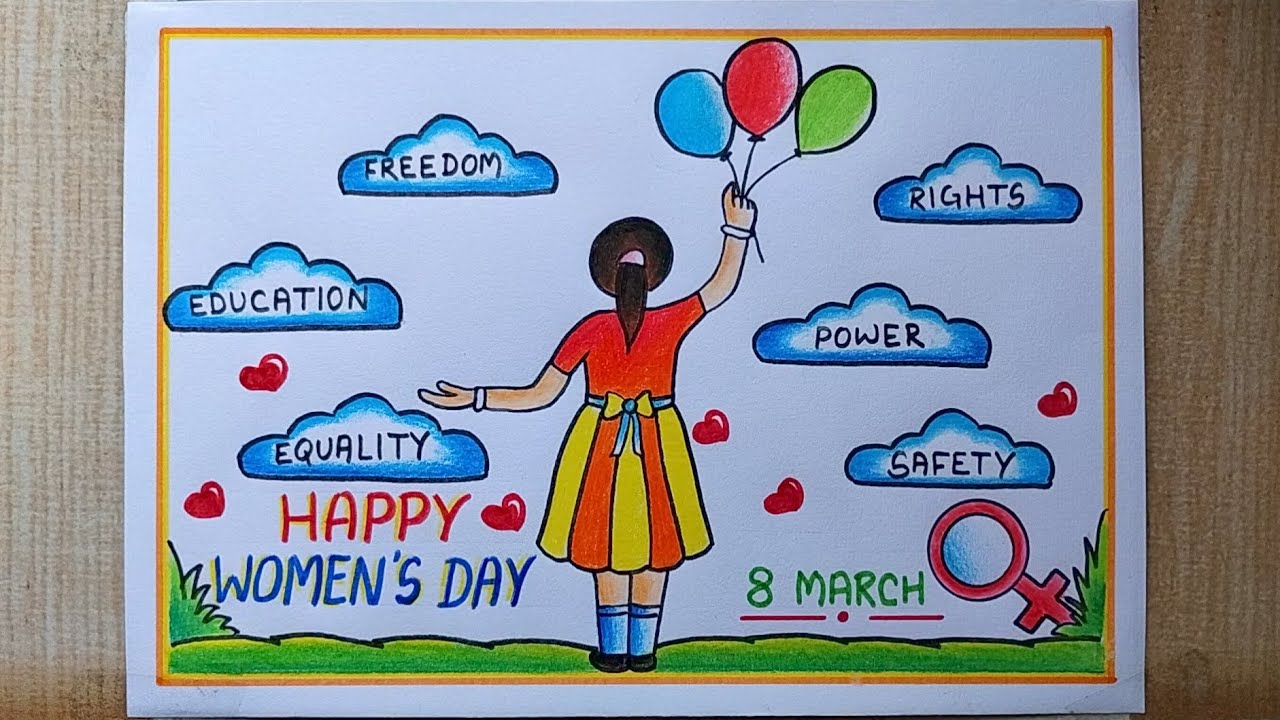 FREEDOM
RIGHTS
EDUCATION
POWER
EQUALITY
SAFETY
HAPPY
WOMEN'S DAY
8 MARCH